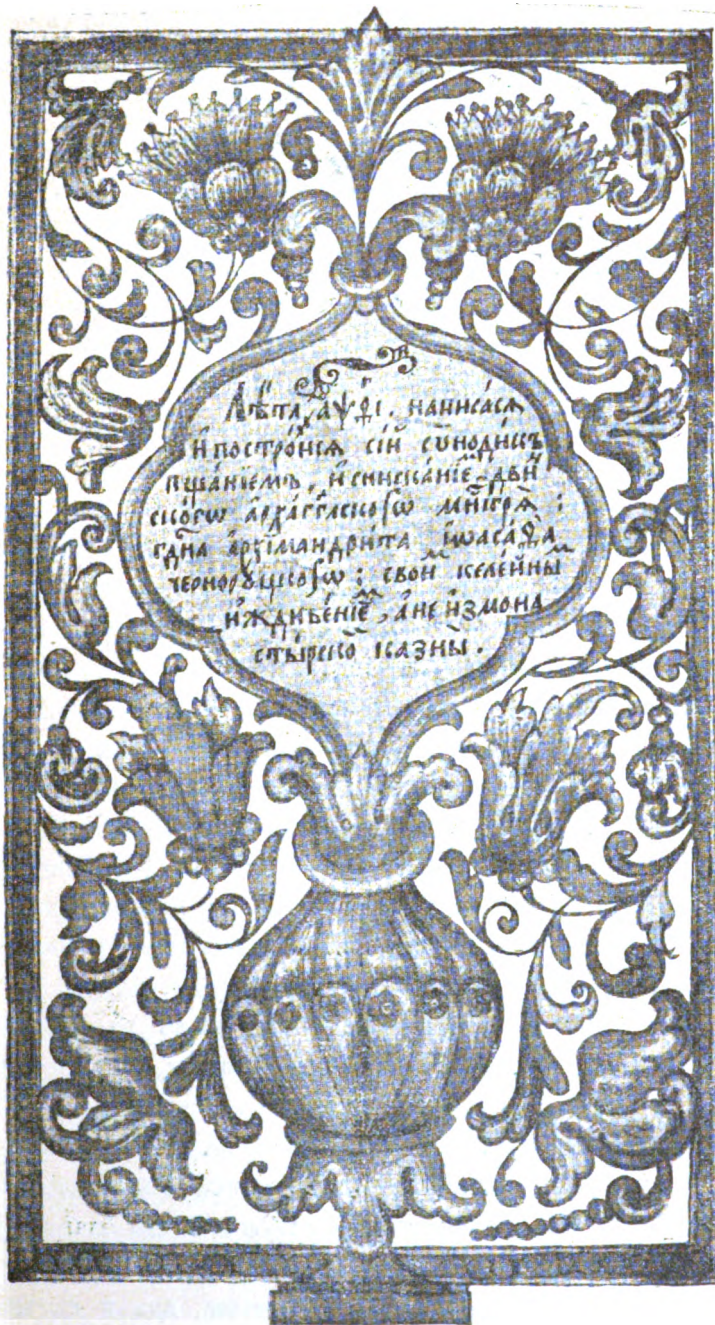 Лѣта ҂аѱ҃гі. написася
и построися сій сѵнодикъ
тщаніемъ, и снисканіеⷨ двиⷩ
скогѡ архаⷢ҇гелскогѡ мⷩ҇тря̀ :
гдⷭ҇на архімандрита іѡасафа
чернорꙋцкогѡ : своиⷨ келейныⷨ
иждивеніеⷨ, а не из мона
стырскоⷤ казны̀ .